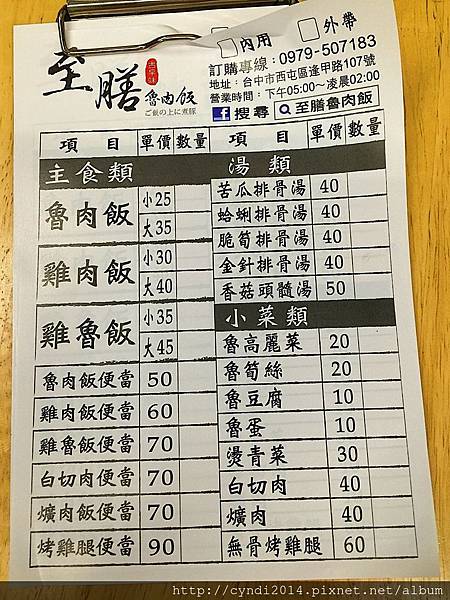 內用 外帶
至膳
魯肉飯
ご飯の上に煮豚
訂購專線：0979-507183
地址：台中市西屯區逢甲路107號
營業時間：下午05:00～凌晨02:00
搜尋 至膳魯肉飯
項 目 單價 數量
主食類
魯肉飯 小25
大35
雞肉飯 小30
大40
雞魯飯 小35
大45
魯肉飯便當 50
雞肉飯便當 60
雞魯飯便當 70
白切肉便當 70
爌肉飯便當 70
烤雞腿便當 90
項 目 單價 數量
湯類
苦瓜排骨湯 40
蛤蜊排骨湯 40
脆筍排骨湯 40
金針排骨湯 40
香菇頭髓湯 50
小菜類
魯高麗菜 20
魯筍絲 20
魯豆腐 10
魯蛋 10
燙青菜 30
白切肉 40
爌肉 40
無骨烤雞腿 60
http://cyndi2014.pixnet.net/album